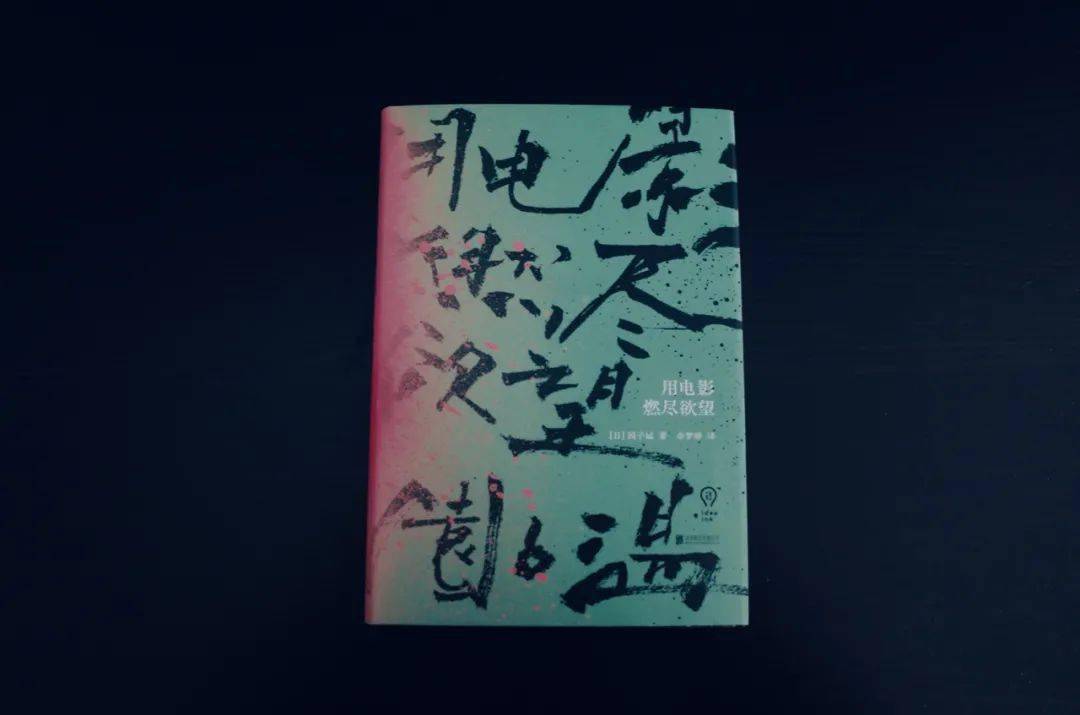 用电影
燃尽欲望
園子温
用电影
燃尽欲望
[日]园子温 著
idea
ink